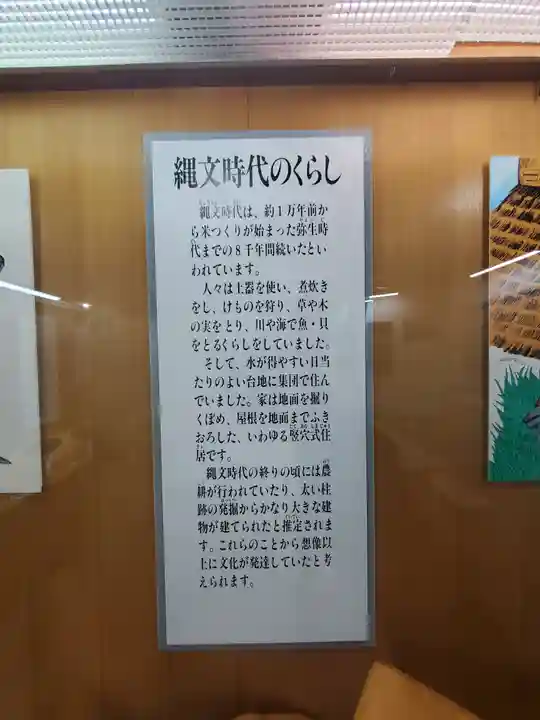 縄文時代のくらし
縄文時代は、約1万年前か
ら米つくりが始まった弥生時
代までの8千年間続いたとい
われています。
人々は土器を使い、煮炊き
をし、けものを狩り、草や木
の実をとり、川や海で魚・貝
をとるくらしをしていました。
そして、水が得やすい日当
たりのよい台地に集団で住ん
でいました。家は地面を掘り
くぼめ、屋根を地面までふき
おろした、いわゆる竪穴式住
居です。
縄文時代の終りの頃には農
耕が行われていたり、太い柱
跡の発掘からかなり大きな建
物が建てられたと推定されま
す。これらのことから想像以
上に文化が発達していたと考
えられます。